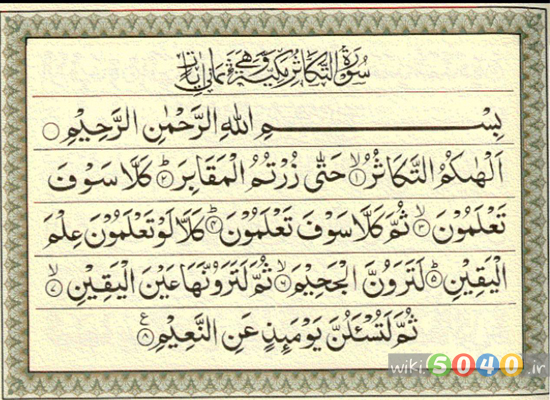 سُورَةُ التَّكَاثُرِ مَكِّيَّةٌ وَهِيَ ثَمَانِي آيَاتٍ
بِسْمِ اللهِ الرَّحْمٰنِ الرَّحِيْمِ ○
اَلْهٰىكُمُ التَّكَاثُرُۙ ١ حَتّٰى زُرْتُمُ الْمَقَابِرَؕ ٢ كَلَّا سَوْفَ
تَعْلَمُوْنَۙ ٣ ثُمَّ كَلَّا سَوْفَ تَعْلَمُوْنَؕ ٤ كَلَّا لَوْ تَعْلَمُوْنَ عِلْمَ
الْيَقِيْنِؕ ٥ لَتَرَوُنَّ الْجَحِيْمَۙ ٦ ثُمَّ لَتَرَوُنَّهَا عَيْنَ الْيَقِيْنِۙ ٧
ثُمَّ لَتُسْـَٔلُنَّ يَوْمَىِٕذٍ عَنِ النَّعِيْمِ ٨ ع
wiki.5040.ir